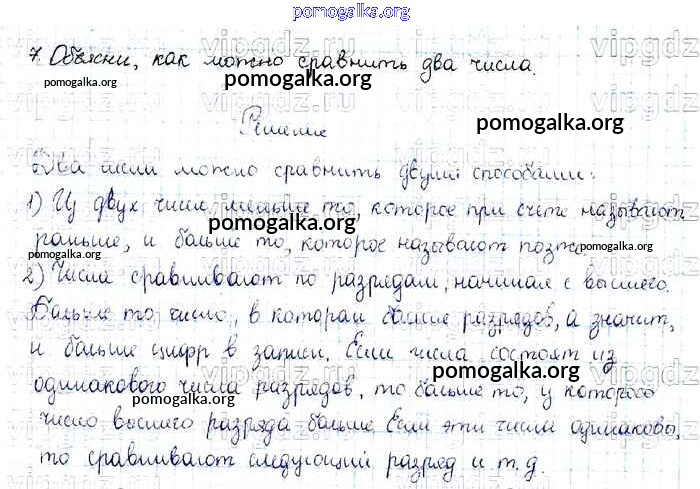 pomogalka.org
7. Объясни, как можно сравнить два числа.
Решение
Два числа можно сравнить двумя способами:
1) Из двух чисел меньше то, которое при счете называют
раньше, и больше то, которое называют позже.
2) Числа сравнивают по разрядам, начиная с высшего.
Больше то число, в котором больше разрядов, а значит,
и больше цифр в записи. Если числа состоят из
одинакового числа разрядов, то больше то, у которого
число высшего разряда больше. Если эти числа одинаковы,
то сравнивают следующий разряд и т.д.